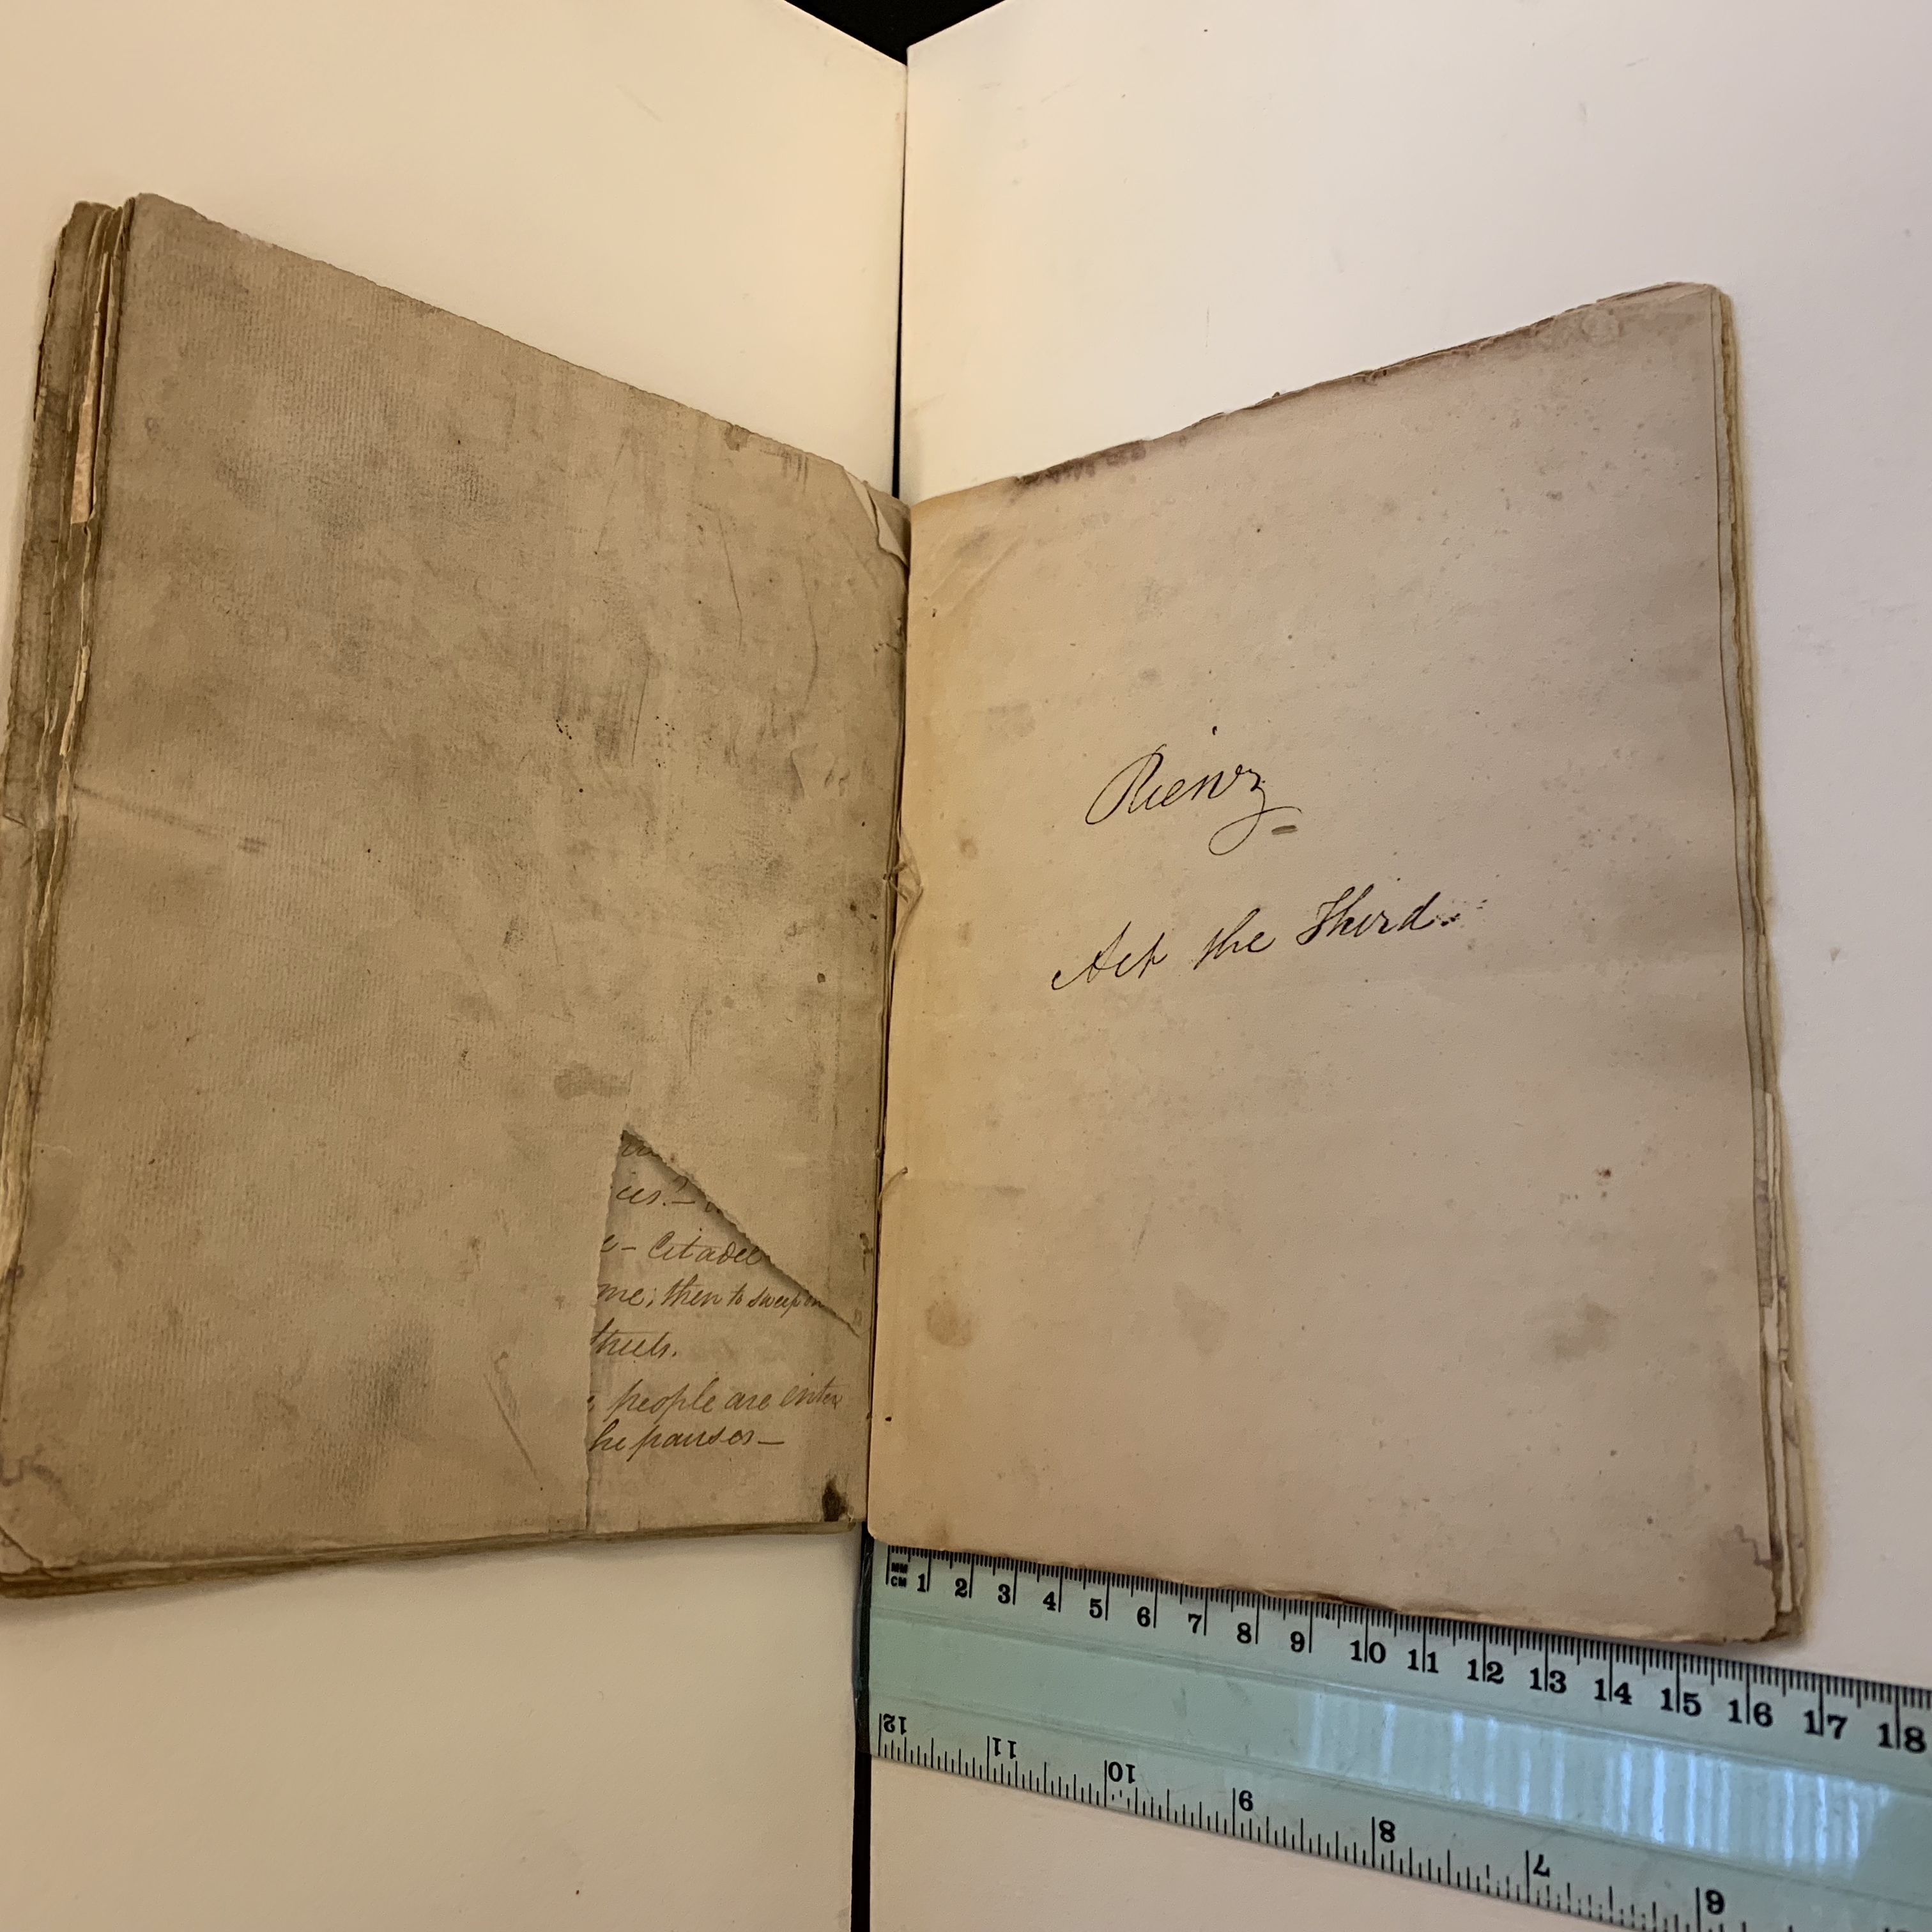 ies!—
e— Citadel
me; then to sweep on
people are enter
he pauses—
Rienzi
Act the Third.
MM
CM 1 2 3 4 5 6 7 8 9 10 11 12 13 14 15 16 17 18
12 11 10 9 8 7 6